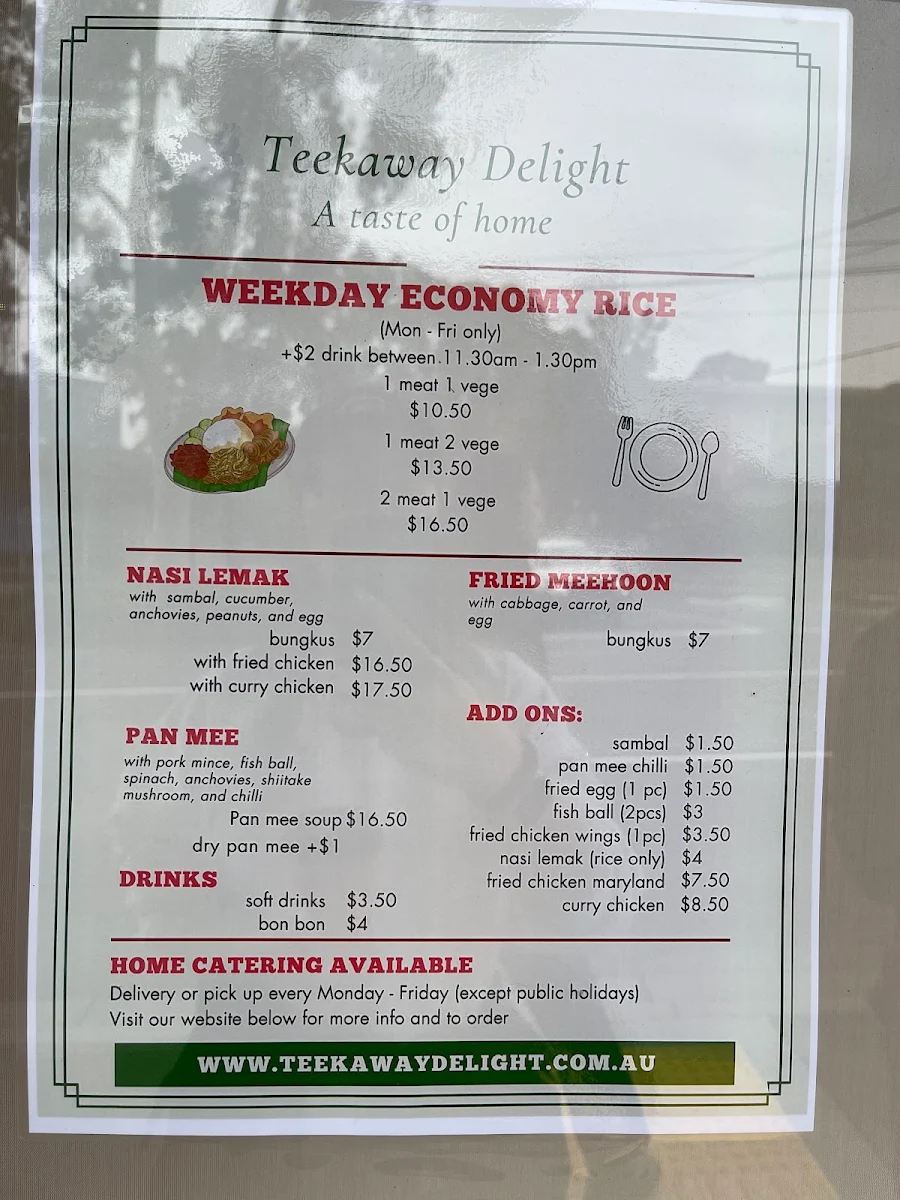 Teekaway Delight
A taste of home
WEEKDAY ECONOMY RICE
(Mon - Fri only)
+$2 drink between 11.30am - 1.30pm
1 meat 1 vege
$10.50
1 meat 2 vege
$13.50
2 meat 1 vege
$16.50
NASI LEMAK
with sambal, cucumber,
anchovies, peanuts, and egg
bungkus $7
with fried chicken $16.50
with curry chicken $17.50
PAN MEE
with pork mince, fish ball,
spinach, anchovies, shiitake
mushroom, and chilli
Pan mee soup $16.50
dry pan mee +$1
DRINKS
soft drinks $3.50
bon bon $4
FRIED MEEHOON
with cabbage, carrot, and
egg
bungkus $7
ADD ONS:
sambal $1.50
pan mee chilli $1.50
fried egg (1 pc) $1.50
fish ball (2pcs) $3
fried chicken wings (1pc) $3.50
nasi lemak (rice only) $4
fried chicken maryland $7.50
curry chicken $8.50
HOME CATERING AVAILABLE
Delivery or pick up every Monday - Friday (except public holidays)
Visit our website below for more info and to order
WWW.TEEKAWAYDELIGHT.COM.AU